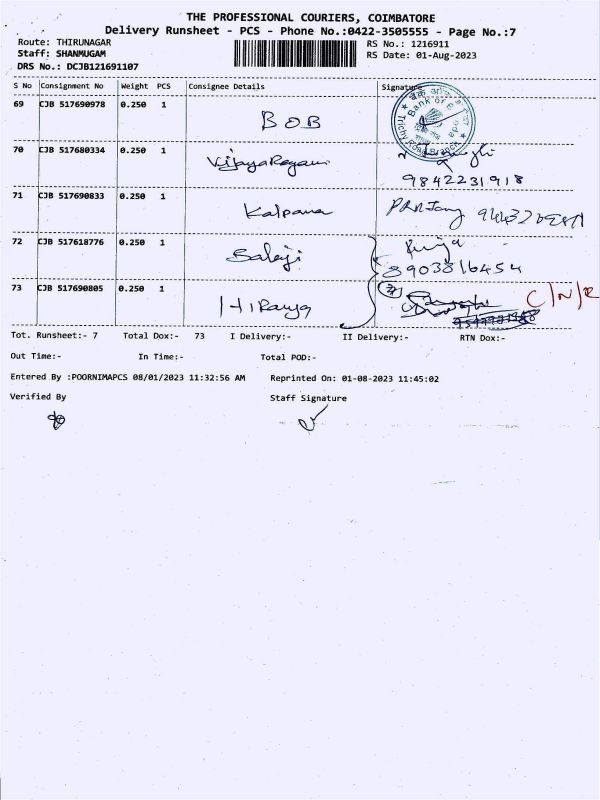 THE PROFESSIONAL COURIERS, COIMBATORE
Delivery Runsheet - PCS - Phone No.:0422-3505555 - Page No.:7
Route: THIRUNAGAR RS No.: 1216911
Staff: SHANMUGAM RS Date: 01-Aug-2023
DRS No.: DCJB121691107
S No Consignment No Weight PCS Consignee Details Signature
69 CJB 517690978 0.250 1 BOB
Bank of
Trichy Road Branch
70 CJB 517680334 0.250 1
9842231918
71 CJB 517690833 0.250 1 Kalpana
72 CJB 517618776 0.250 1 Balaji
8903816454
73 CJB 517690805 0.250 1 C/N/R
Tot. Runsheet:- 7 Total Dox:- 73 I Delivery:- II Delivery:- RTN Dox:-
Out Time:- In Time:- Total POD:-
Entered By :POORNIMAPCS 08/01/2023 11:32:56 AM Reprinted On: 01-08-2023 11:45:02
Verified By Staff Signature